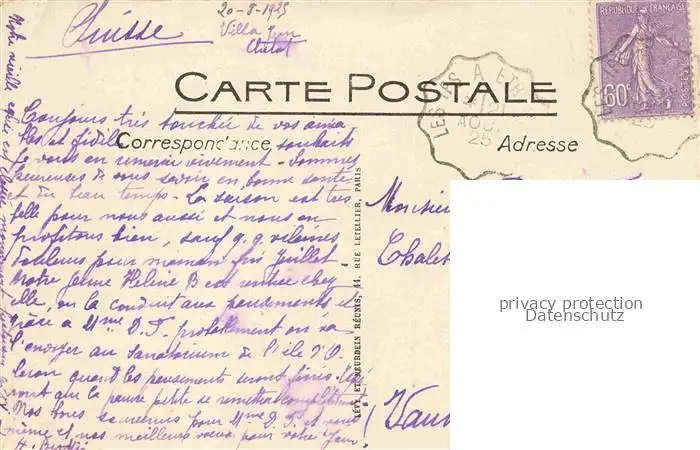 Suisse
20-8-1925
Villa
Chalet
CARTE POSTALE
Correspondance
Adresse
REPUBLIQUE FRANÇAISE
60c
POSTES
A
AOU
25
25
Toujours très touchée de vos aima
bles et fidèles souhaits
Je vous en remercie vivement - Sommes
heureuses de vous savoir en bonne santé
et du beau temps - La saison est très
belle pour nous aussi et nous en
profitons bien, sauf q.q. vilaines
douleurs pour maman fin Juillet -
Notre jeune Hélène B est rentrée chez
elle, on la conduit aux pansements et
grâce à Mme D.F. probablement on va
l'envoyer au Sanatorium de l'île d'O
leron quand les pansements seront finis.
ront que la pauvre petite se remettra complètement
Nos bons souvenirs pour Mme D.F. et vous
même et nos meilleurs vœux pour votre
H.
LÉVY ET NEURDEIN RÉUNIS, 44, RUE LETELLIER, PARIS
Monsieur
Chalet
(Vau
privacy protection
Datenschutz